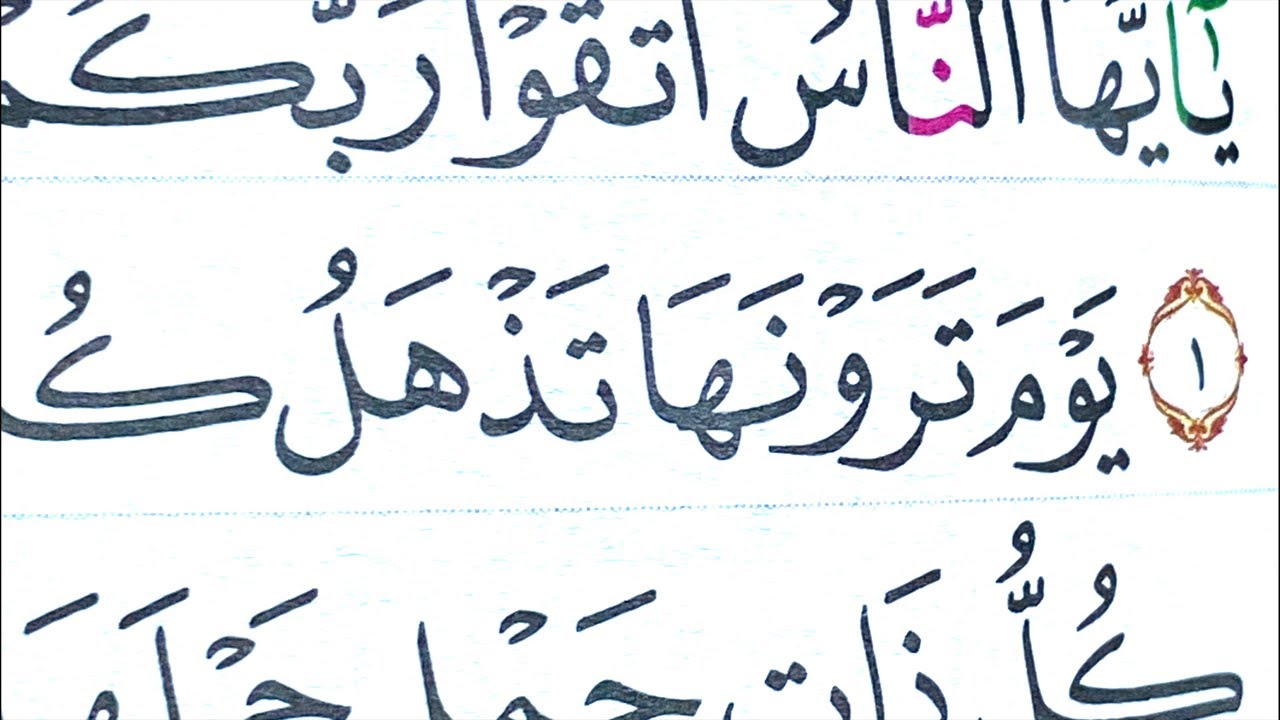 يَٰٓأَيُّهَا النَّاسُ اتَّقُوْا رَبَّكُمْ
١ يَوْمَ تَرَوْنَهَا تَذْهَلُ كُ
كُلُّ ذَاتِ حَمْلٍ حَمْلَهَ